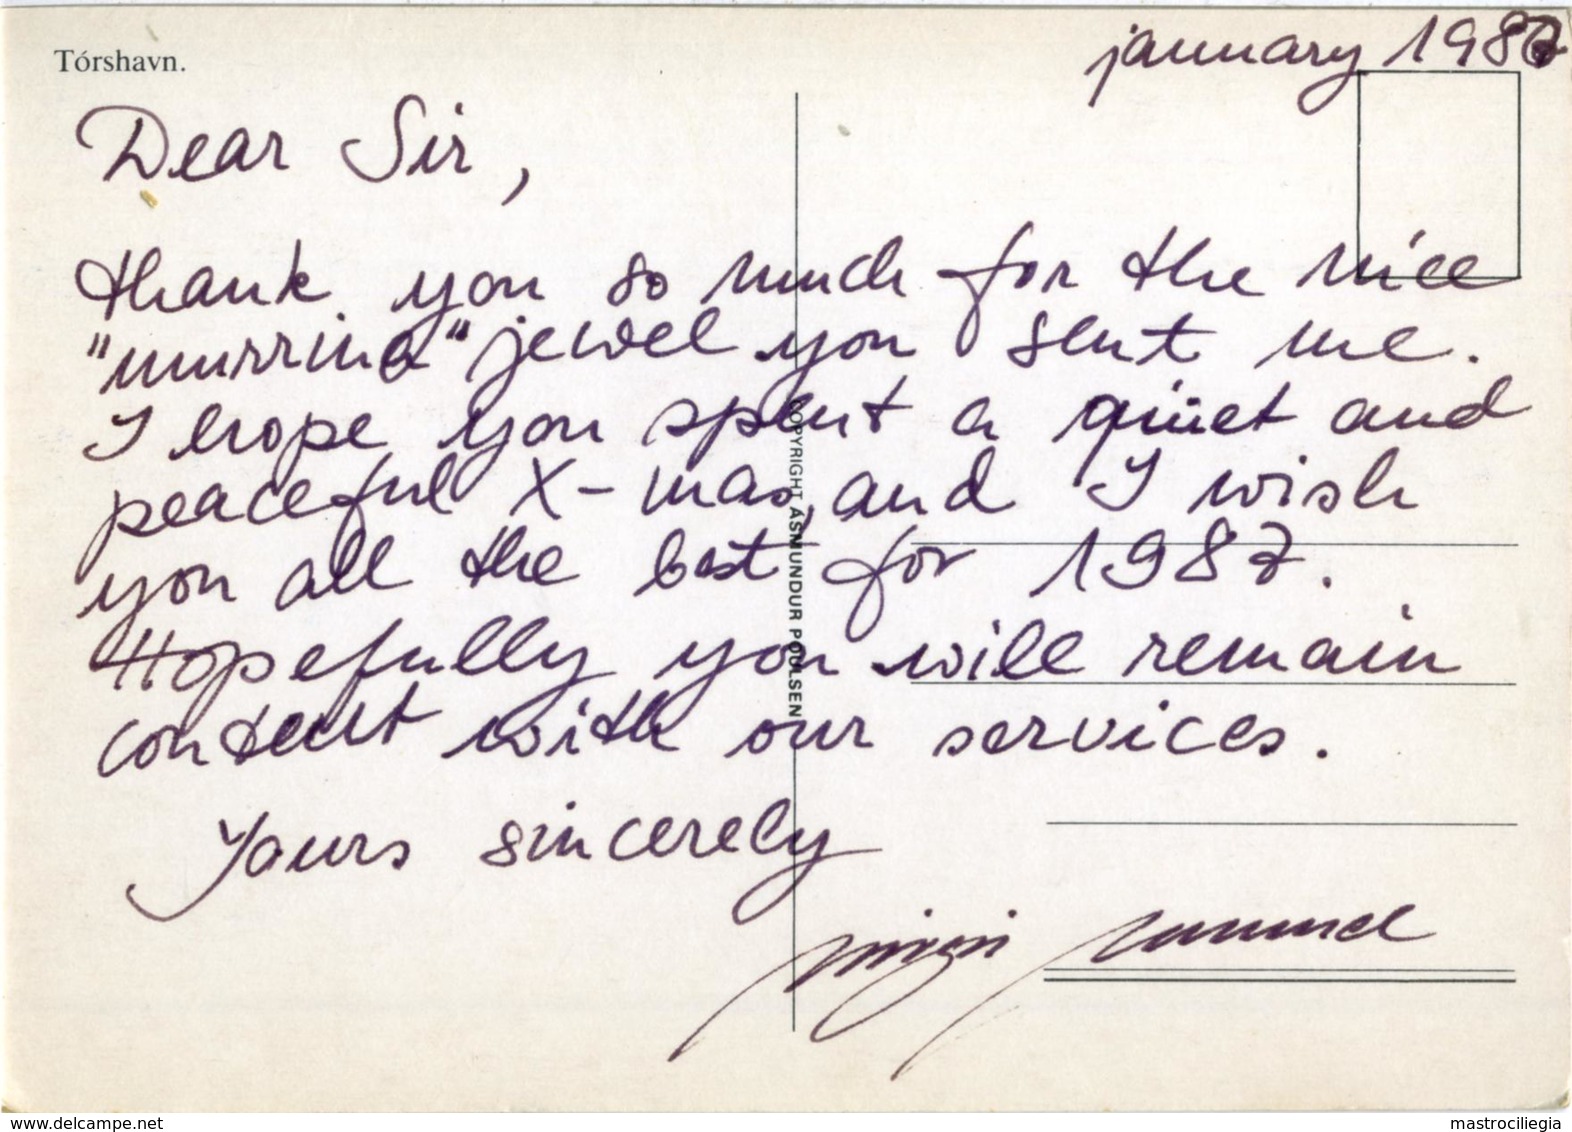 Tórshavn.
january 1987
Dear Sir,
thank you so much for the nice
"murrina" jewel you sent me.
I hope you spent a quiet and
peaceful X-mas, and I wish
you all the best for 1987.
Hopefully you will remain
content with our services.
Yours sincerely
COPYRIGHT ÁSMUNDUR POULSEN
www.delcampe.net
mastrociliegia